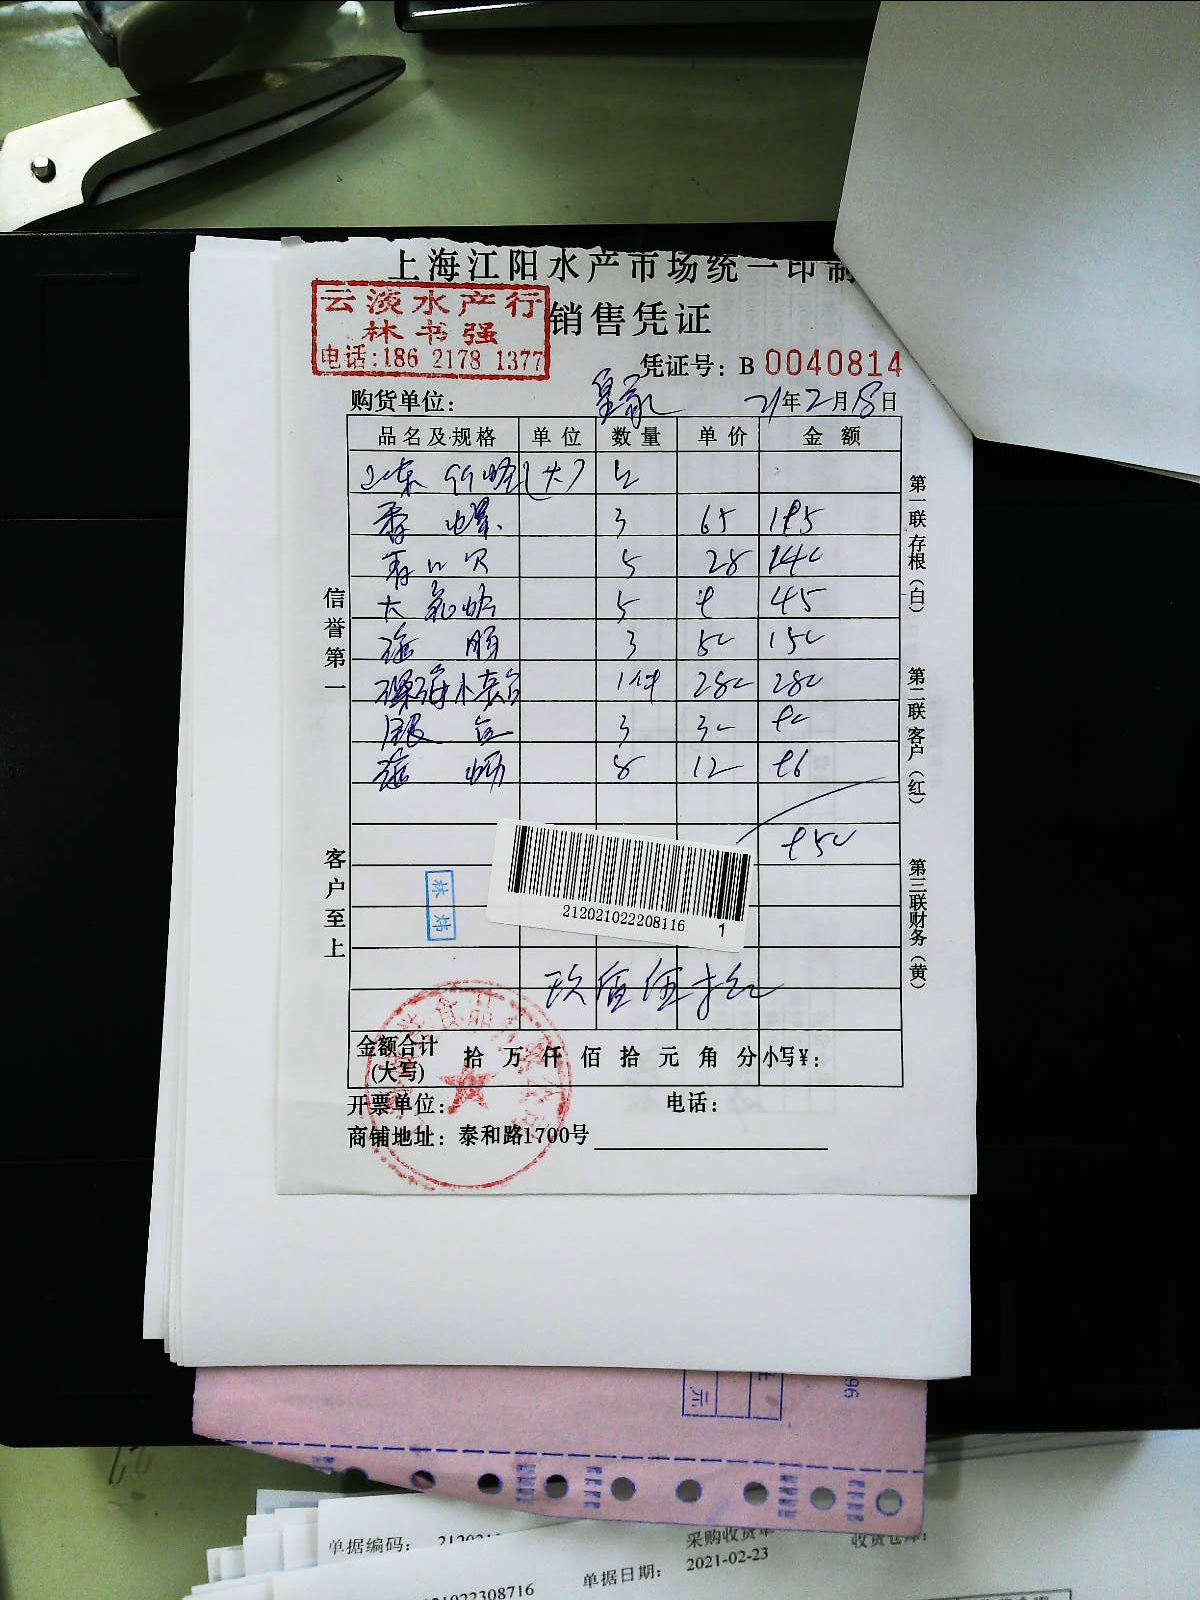 上海江阳水产市场统一印制
云淡水产行
林书强
电话:186 2178 1377
销售凭证
凭证号: B 0040814
购货单位: 皇家 21年2月18日
品名及规格 单位 数量 单价 金额
山东 (大) 5
香螺 3 65 195
青口贝 5 28 140
大 5 9 45
3 50 150
1件 280 280
3 30 90
8 12 96
950
信誉第一
客户至上
第一联存根(白)
第二联客户(红)
第三联财务(黄)
林炜
212021022208116 1
玖佰伍拾
金额合计(大写) 拾万仟佰拾元角分 小写¥:
开票单位: 电话:
商铺地址: 泰和路1700号
96
示
单据编码:
采购收货单
收货仓库:
单据日期: 2021-02-23
21022308716